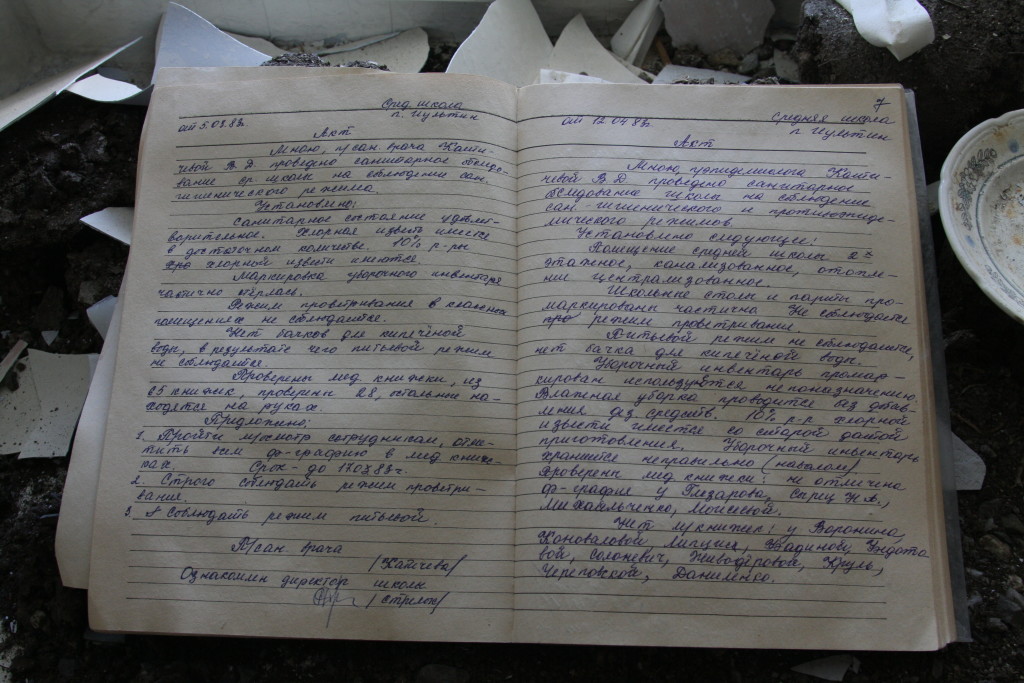 Сред. школа
п. Иультин
от 5.03.83г.
Акт
Мною, п/сан. врача Кайти-
чевой В.Д. проведено санитарное обследо-
вание ср. школы на соблюдении сан.
гигиенического режима.
Установлено:
Санитарное состояние удовлет-
ворительное. Хлорная известь имеется
в достаточном количестве. 10% р-ры
хлорной извести имеются.
Маркировка уборочного инвентаря
частично стёрлась.
Режим проветривания в
помещениях не соблюдается.
Нет бачков для кипячёной
воды, в результате чего питьевой режим
не соблюдается.
Проверены мед. книжки, из
65 книжек, проверены 28, остальные на-
ходятся на руках.
Предложено:
1. Пройти м/осмотр сотрудникам, отме-
тить всем ф-графию в мед. книж-
ках. Срок - до 17.03.83г.
2. Строго соблюдать режим проветри-
вания.
3. Соблюдать режим питьевой.
П/сан. врача
/Кайчева/
Ознакомлен директор школы
/Стрелок/
7
Средняя школа
п. Иультин
от 12.04.83г.
Акт
Мною, п/эпидемиолога Кайти-
чевой В.Д проведено санитарное
обследование школы на соблюдение
сан-гигиенического и противоэпиде-
мического режимов.
Установлено следующее:
Помещение средней школы 2х
этажное, канализованное, отопле-
ние централизованное.
Школьные столы и парты про-
маркированы частично. Не соблюдается
режим проветривания.
Питьевой режим не соблюдается,
нет бачка для кипячёной воды.
Уборочный инвентарь промар-
кирован используются не по назначению.
Влажная уборка проводится без добав-
ления дез. средств. 10% р-р хлорной
извести имеется со старой датой
приготовления. Уборочный инвентарь
хранится неправильно (навалом)
Проверены мед книжки: не отмечена
ф-графия у Глазарова, Н.А.,
Михайльченко, Моисеевой.
Нет м/книжек: у Воронина,
Коноваловой
вой, Солоневич, Живодёровой, Круль,
Череповской, Даниленко.